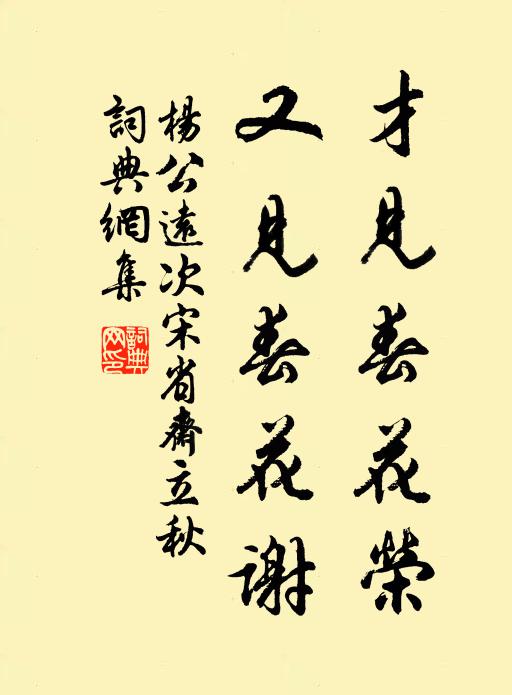 才見春花榮
又見春花謝
楊公遠次宋省齋立秋
詞典網集
詞典
网印